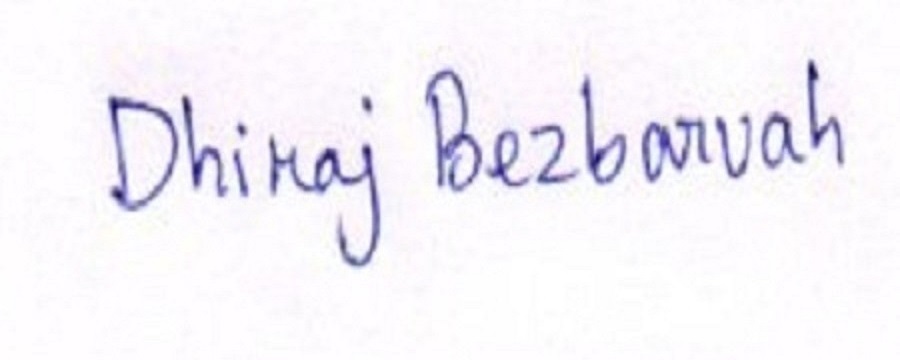 Dhiraj Bezbaruah